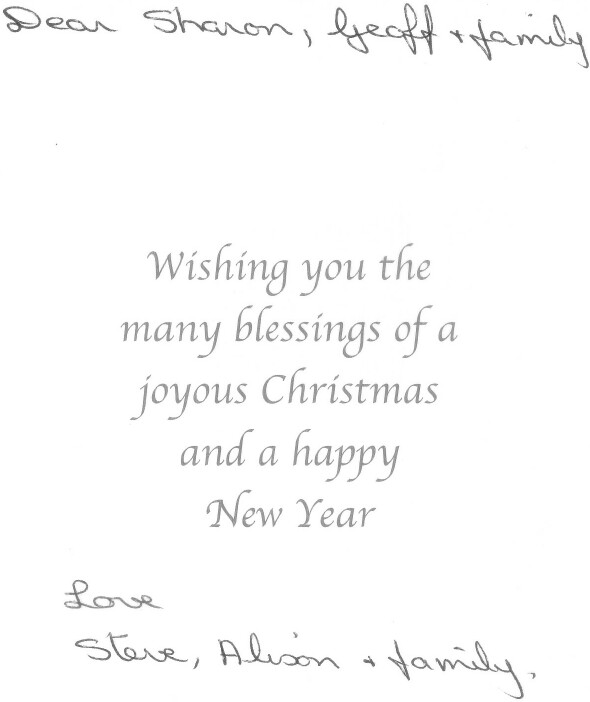 Dear Sharon, Geoff + family
Wishing you the
many blessings of a
joyous Christmas
and a happy
New Year
Love
Steve, Alison + family.